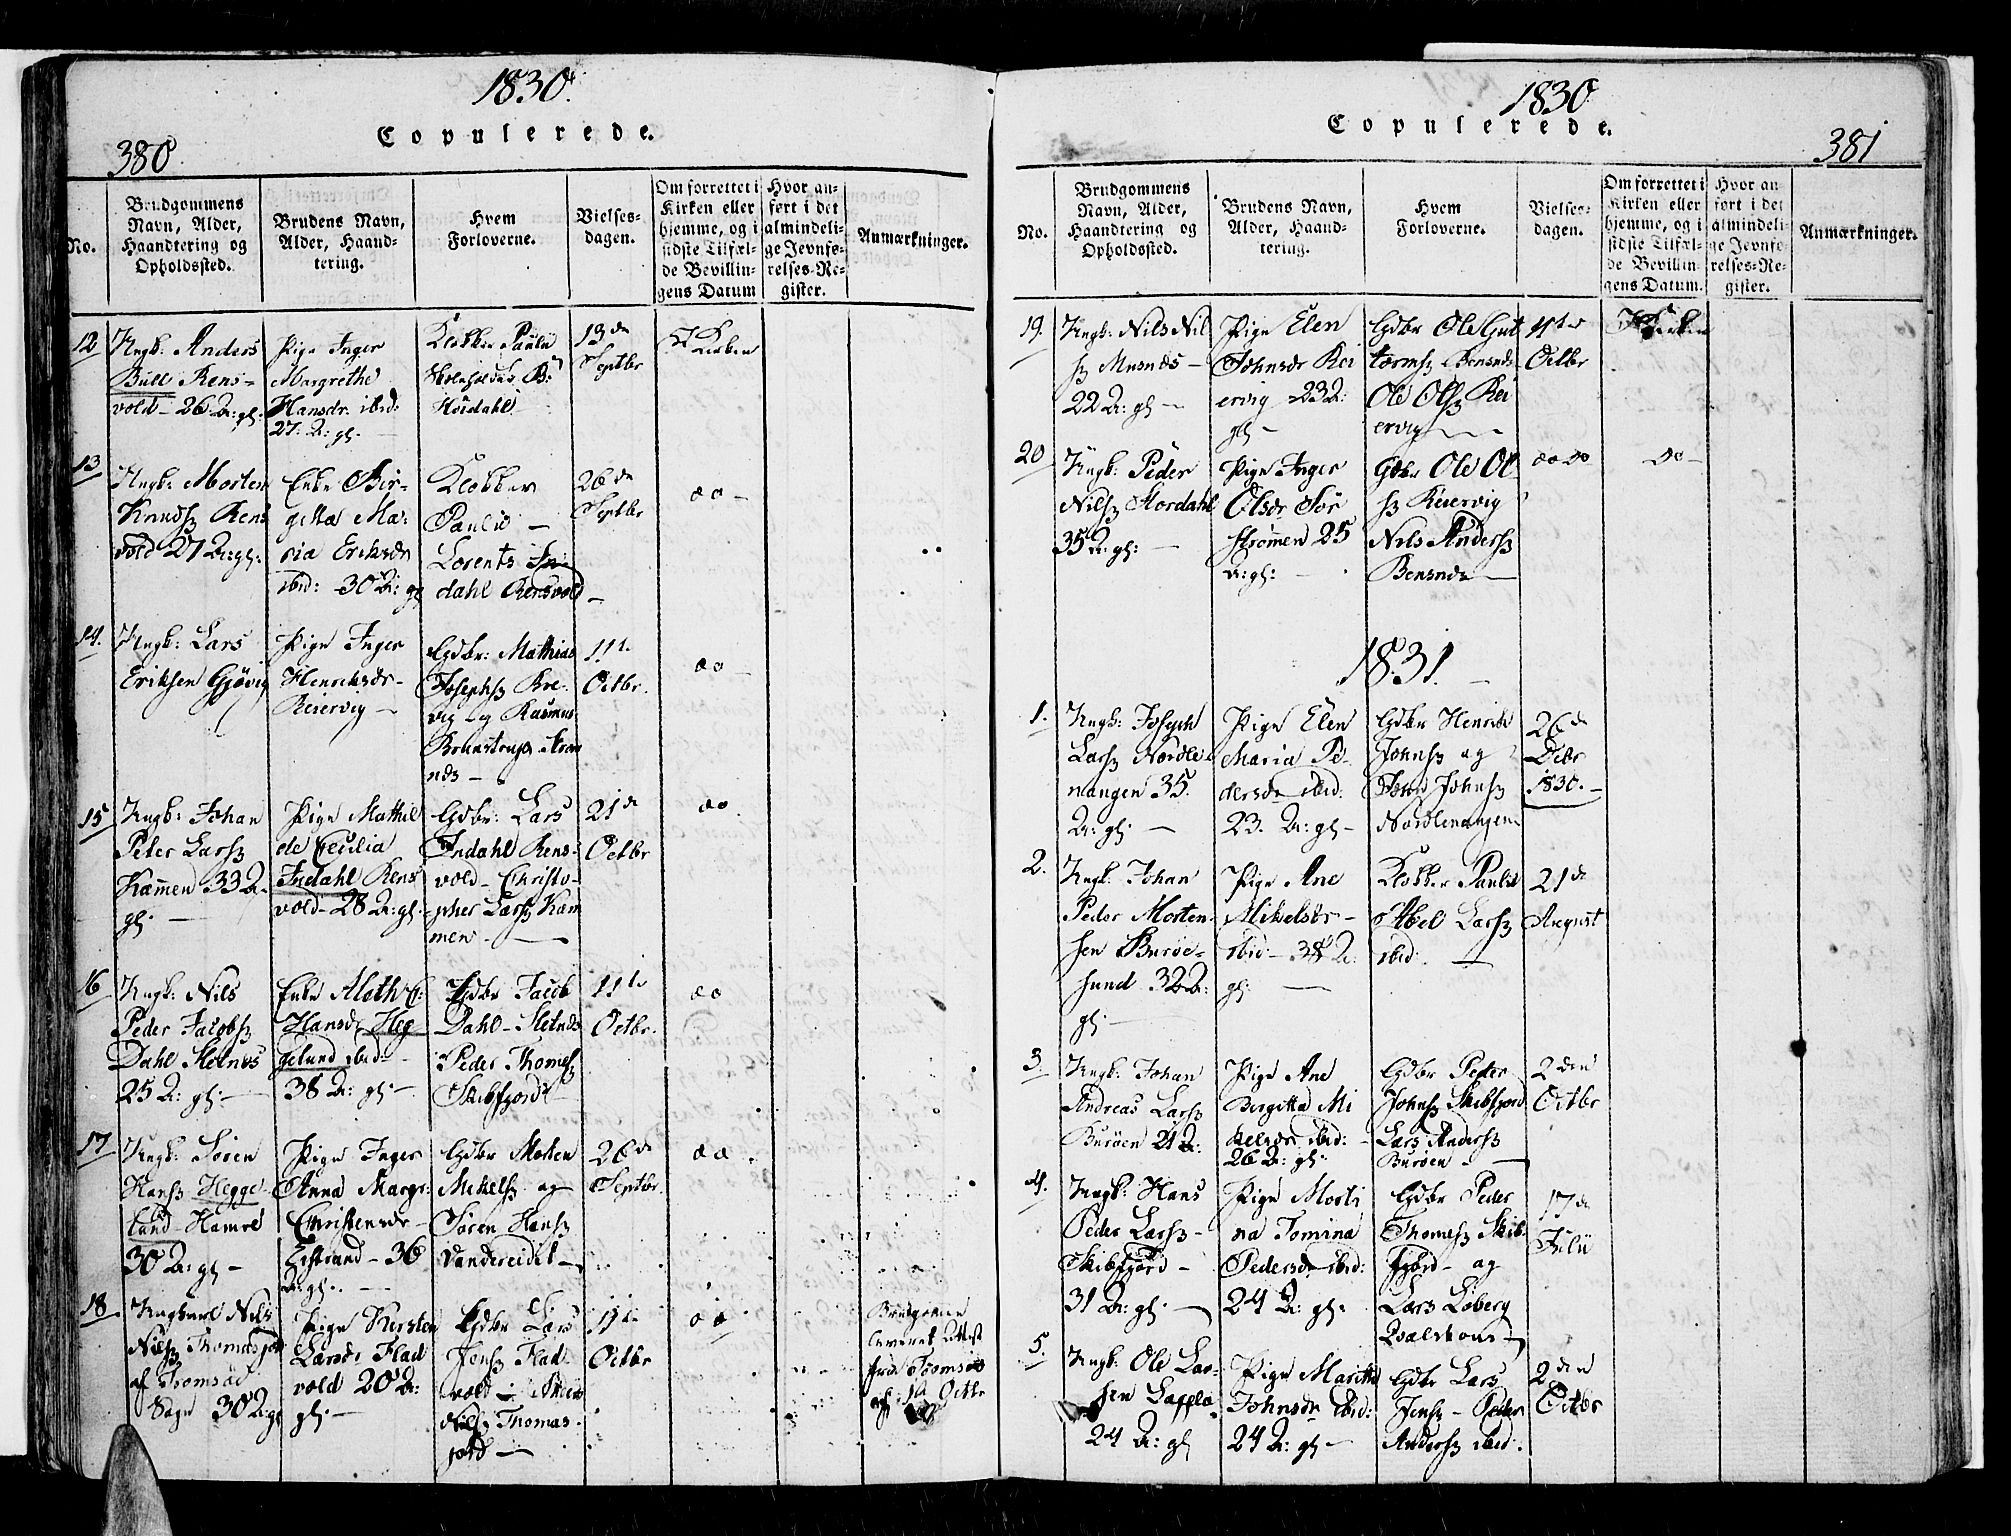 1830.
Copulerede.
380
No.
Brudgommens
Navn, Alder,
Haandtering og
Opholdssted.
Brudens Navn,
Alder, Haand-
tering.
Hvem
Forloverne.
Vielses-
dagen.
Om forrettet i
Kirken eller
hjemme, og i
sidste Tilfæl-
de Bevillin-
gens Datum
Hvor an-
ført i det
almindeli-
ge Jevnfø-
relses-Re-
gister.
Anmærkninger.
12
Ungk: Anders
Bull Rens-
vold - 26 Ar: gl.
Pige Inger
Margrethe
Hansdr. ibid:
27. Ar: gl.
Klokker Paulin
Høidahl
13de
Septbr
I Kirken
13
Ungk: Morten
Knudsz Rens
vold 27 Ar: gl:
Enke Bir-
gitta Ma-
ria Eriksdr
ibid: 30 Ar: gl
Klokker
Paulin -
Lorents In-
dahl Rensvold
26de
Septbr
do -
14.
Ungk: Lars
Eriksen Gjövig
Pige Inger
Henriksdr-
Reiervig -
Gdbr: Mathias
Josephsz Kre-
vig og Rasmus
11te
Octbr.
do -
15
Ungk: Johan
Peter Larsz
Kammen 33 Ar
gl. -
Pige Mathil
de Cecilia
Indahl Rens
vold - 28 Ar: gl.
Gdbr: Lars
Indahl Rens-
vold - Christo-
pher Larsz Kam
men -
21de
Octbr
do.
16
Ungk: Nils
Peder Jacobsz
Dahl Sletnæs
25 Ar: gl: -
Enke Aleth C:
Hansdr Heg
gelund ibid: -
38 Ar: gl -
Gdbr Jacob
Dahl - Sletnæs
Peder Thomesz
Skibsfjord -
11te
Octbr.
do
17
Ungk: Sören
Hansz Hegge-
lund Hamre
30 Ar: gl -
Pige Inger
Anna Margr:
Christensdr -
Eistrand - 36
Ar: gl. -
Gdbr Morten
Mikelsz og
Sören Hansz
Vandereidet -
26de
Septbr.
do.
18.
Ungkarl Nils
Nilsz Thomasjord
af Tromsöe
Sogn 30 Ar: gl
Pige Kirsten
Larsdr Flad
vold 20 Ar:
gl: -
Gdbr Lars
Jensz Flad-
vold -
Nils Thomas-
jord -
11te
Octbr
do
Brudgommen
leveret Attest
fra Tromsöe
af 1ste Octbr
1830
Copulerede.
381
No.
Brudgommens
Navn, Alder,
Haandtering og
Opholdssted.
Brudens Navn,
Alder, Haand-
tering.
Hvem
Forloverne.
Vielses-
dagen.
Om forrettet i
Kirken eller
hjemme, og i
sidste Tilfæl-
de Bevillin-
gens Datum.
Hvor an
ført i det
almindeli-
ge Jevnfø-
relses-Re-
gister.
Anmærkninger.
19.
Ungk: Nils Nil
sz Musnæs -
22 Ar: gl -
Pige Elen
Johnsdr Rei
ervig 23 Ar:
gl -
Gdbr Ole Gut
tormsz Bensnæs
Ole Olsz Rei
ervig -
11te
Octbr
I Kirken
20
Ungk: Peder
Nilsz Stordahl
35 Ar: gl: -
Pige Inger
Olsdr Sör
strömen 25
Ar: gl: -
Gdbr Ole Ol
sz Reiervig
Nils Andersz
Bensnæs -
do do
do -
1831.
1.
Ungk: Joseph
Larsz Nordle-
nangen 35.
Ar: gl. -
Pige Elen
Maria Pe-
dersdr ibid:
23. Ar: gl -
Gdbr Henrik
Johnsz og
John Johnsz
Nordlenangen
26de
Decbr
1830. -
2.
Ungk: Johan
Peder Morten-
sen Buröe-
sund 32 Ar:
gl. -
Pige Ane
Mikelsdr -
ibid - 38 Ar:
gl: -
Klokker Paulin
Abel Larsz
ibid: -
21de
August
3.
Ungk: Johan
Andreas Larsz
Buröen 21 Ar:
Pige Ane
Birgitta Mi
kelsdr ibid: -
26 Ar: gl:
Gdbr Peder
Johnsz Skibsfjord
Lars Andersz
Buröen -
2den
Octbr
4.
Ungk: Hans
Peder Larsz -
Skibsfjord -
31 Ar: gl. -
Pige Morti
na Tomina
Pedersdr ibid:
24 Ar: gl.
Gdbr Peder
Thomesz Skibs
fjord - og
Lars Löberg
17de
Julii
5.
Ungk: Ole Lar-
sen
24 Ar: gl
Pige Maritha
Johnsdr ibid:
24 Ar: gl -
Gdbr Lars
Jensz - Peder
Andersz ibid.
2den
Octbr